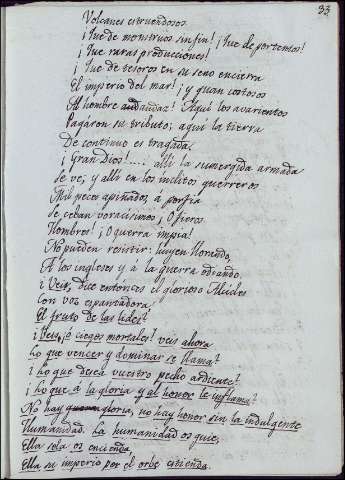 33
Volcanes estruendosos
¡Que de monstruos sin fin! ¡Que de portentos!
¡Que raras producciones!
¡Que de tesoros en su seno encierra
El imperio del mar! ¡y quan costosos
Al hombre audaz! Aquí los avarientos
Pagáron su tributo; aquí la tierra
De continuo es tragada.
¡Gran Dios!.... allí la sumergida armada
Se ve; y allí en los inclitos guerreros
Mil peces apiñados, á porfia
Se ceban voracisimos ¡O fieros
Hombres! ¡O guerra impia!
No pueden resistir: huyen llorando,
A los ingleses y á la guerra odiando.
¿Veis, dice entonces el glorioso Alcides
Con voz espantadora,
El fruto de las lides?
¿Veis, ó ciegos mortales! veis ahora
Lo que vencer y dominar se llama?
¿Lo que desea vuestro pecho ardiente?
¿Lo que á la gloria y al honor le inflama?
No hay gloria, no hay honor sin la indulgente
Humanidad. La humanidad os guie;
Ella sola os encienda,
Ella su imperio por el orbe estienda.